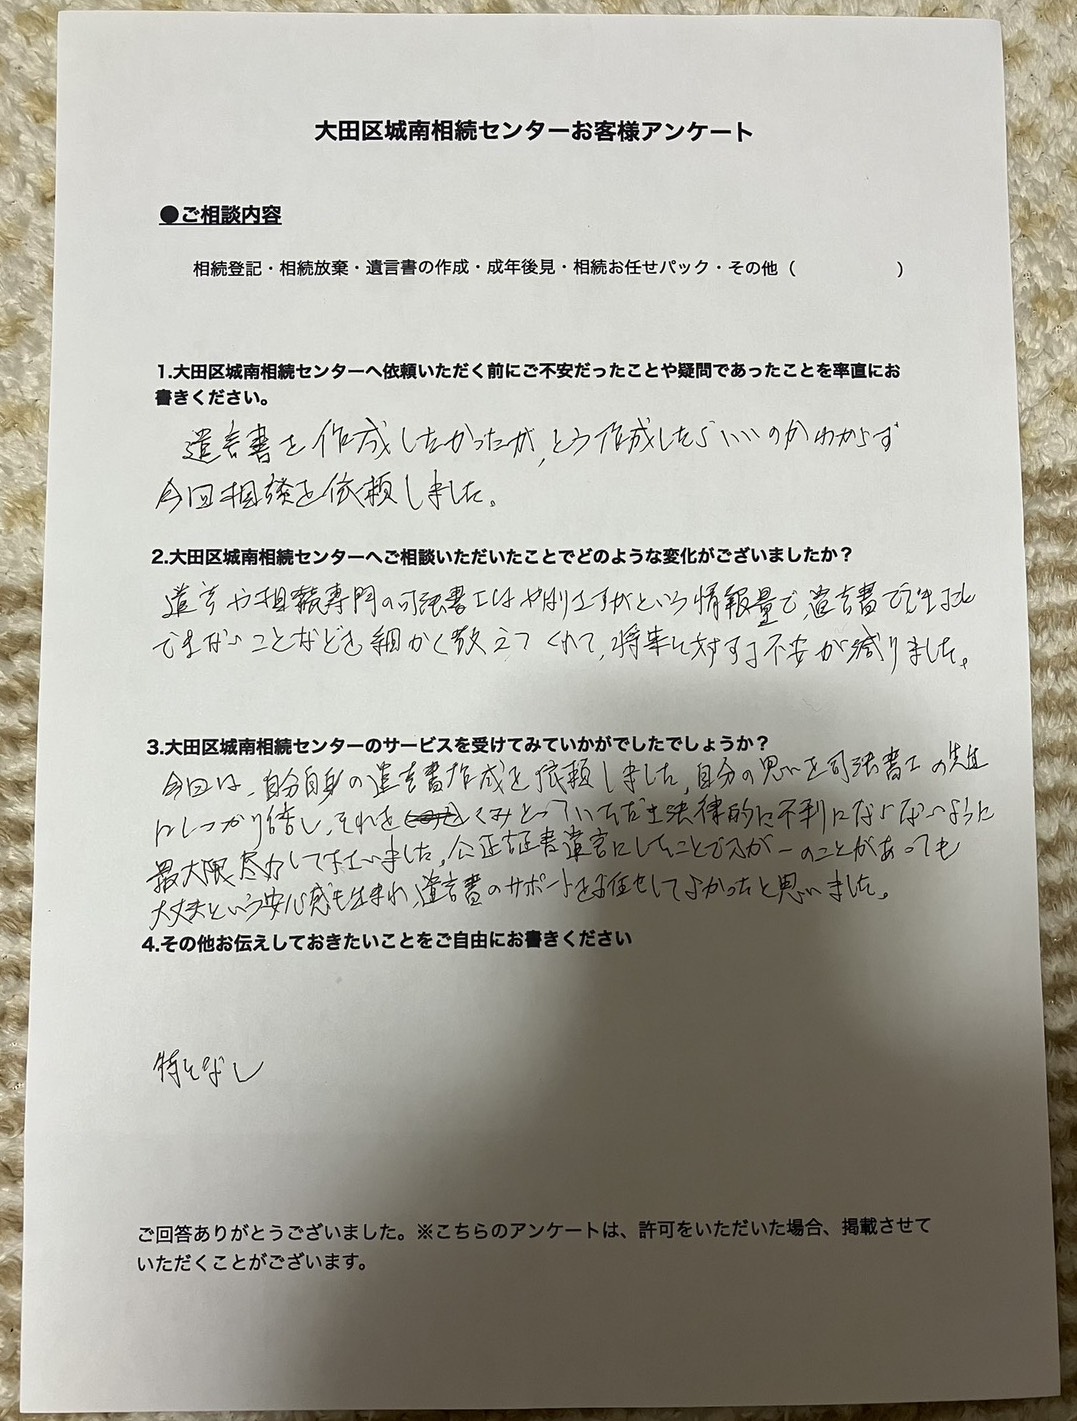 大田区城南相続センターお客様アンケート
●ご相談内容
相続登記・相続放棄・遺言書の作成・成年後見・相続お任せパック・その他（　　　　　　）
1.大田区城南相続センターへ依頼いただく前にご不安だったことや疑問であったことを率直にお
書きください。
遺言書を作成したかったが、どう作成したらいいのかわからず
今回相談を依頼しました。
2.大田区城南相続センターへご相談いただいたことでどのような変化がございましたか？
遺言や相続専門の司法書士はやはりさすがという情報量で、遺言書でできること
できないことなどを細かく教えてくれて、将来に対する不安が減りました。
3.大田区城南相続センターのサービスを受けてみていかがでしたでしょうか？
今回は、自分自身の遺言書作成を依頼しました。自分の思いを司法書士の先生
にしっかり話し、それを くみとっていただき法律的に不利にならないように
最大限尽力して下さいました。公正証書遺言にしたことで万が一のことがあっても
大丈夫という安心感も生まれ、遺言書のサポートをお任せしてよかったと思いました。
4.その他お伝えしておきたいことをご自由にお書きください
特になし
ご回答ありがとうございました。※こちらのアンケートは、許可をいただいた場合、掲載させて
いただくことがございます。